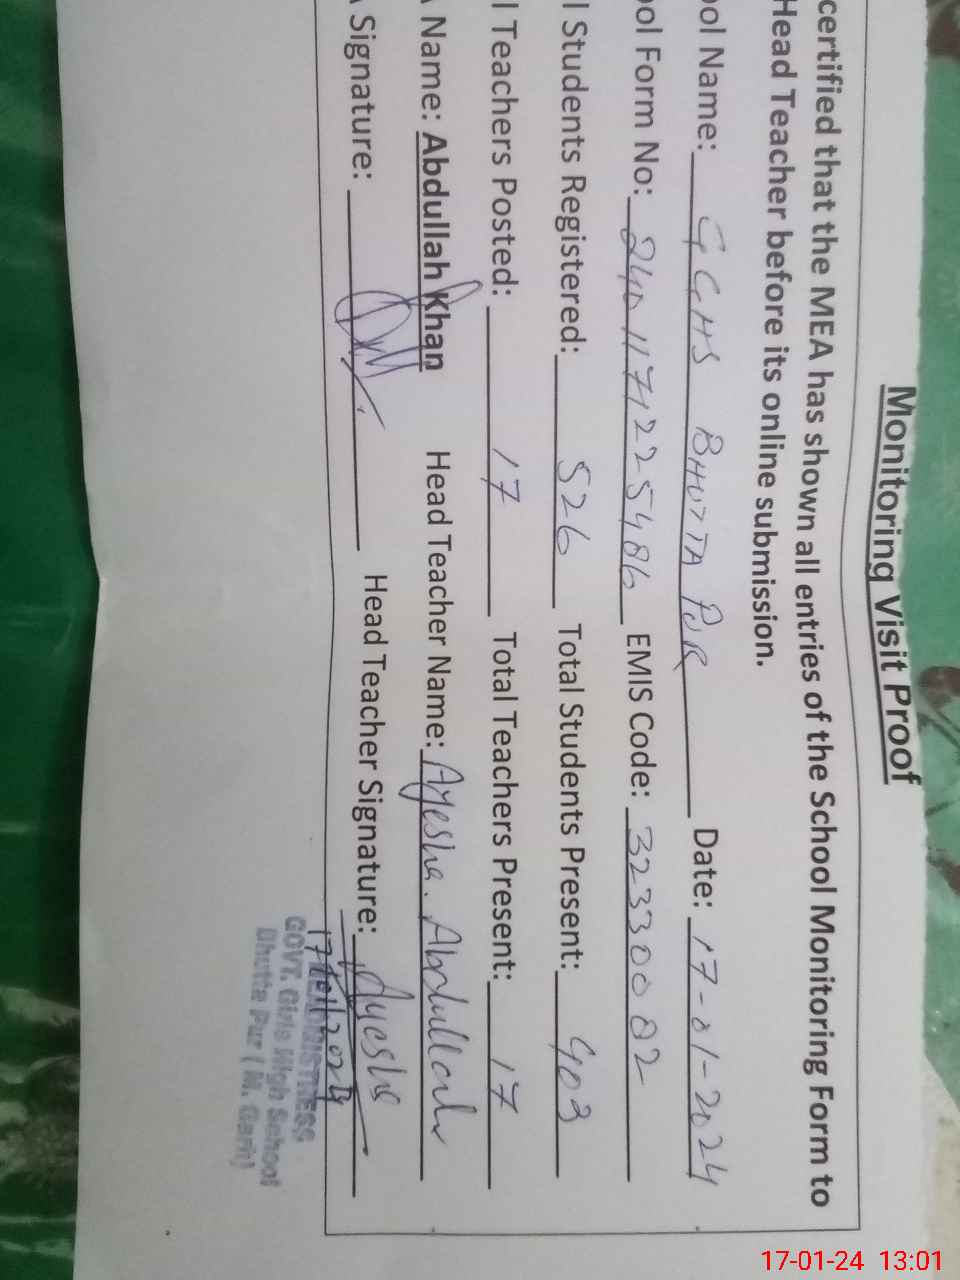 Monitoring Visit Proof
certified that the MEA has shown all entries of the School Monitoring Form to
Head Teacher before its online submission.
ool Name: GGHS BHUTTA PUR Date: 17-01-2024
ool Form No: 2401171225486 EMIS Code: 32330002
l Students Registered: 526 Total Students Present: 403
l Teachers Posted: 17 Total Teachers Present: 17
A Name: Abdullah Khan Head Teacher Name: Ayesha. Abdullah
A Signature: Head Teacher Signature: Ayesha
HEADMISTRESS
GOVT. Girls High School
Bhutta Pur ( M. Garh)
17-01-24 13:01